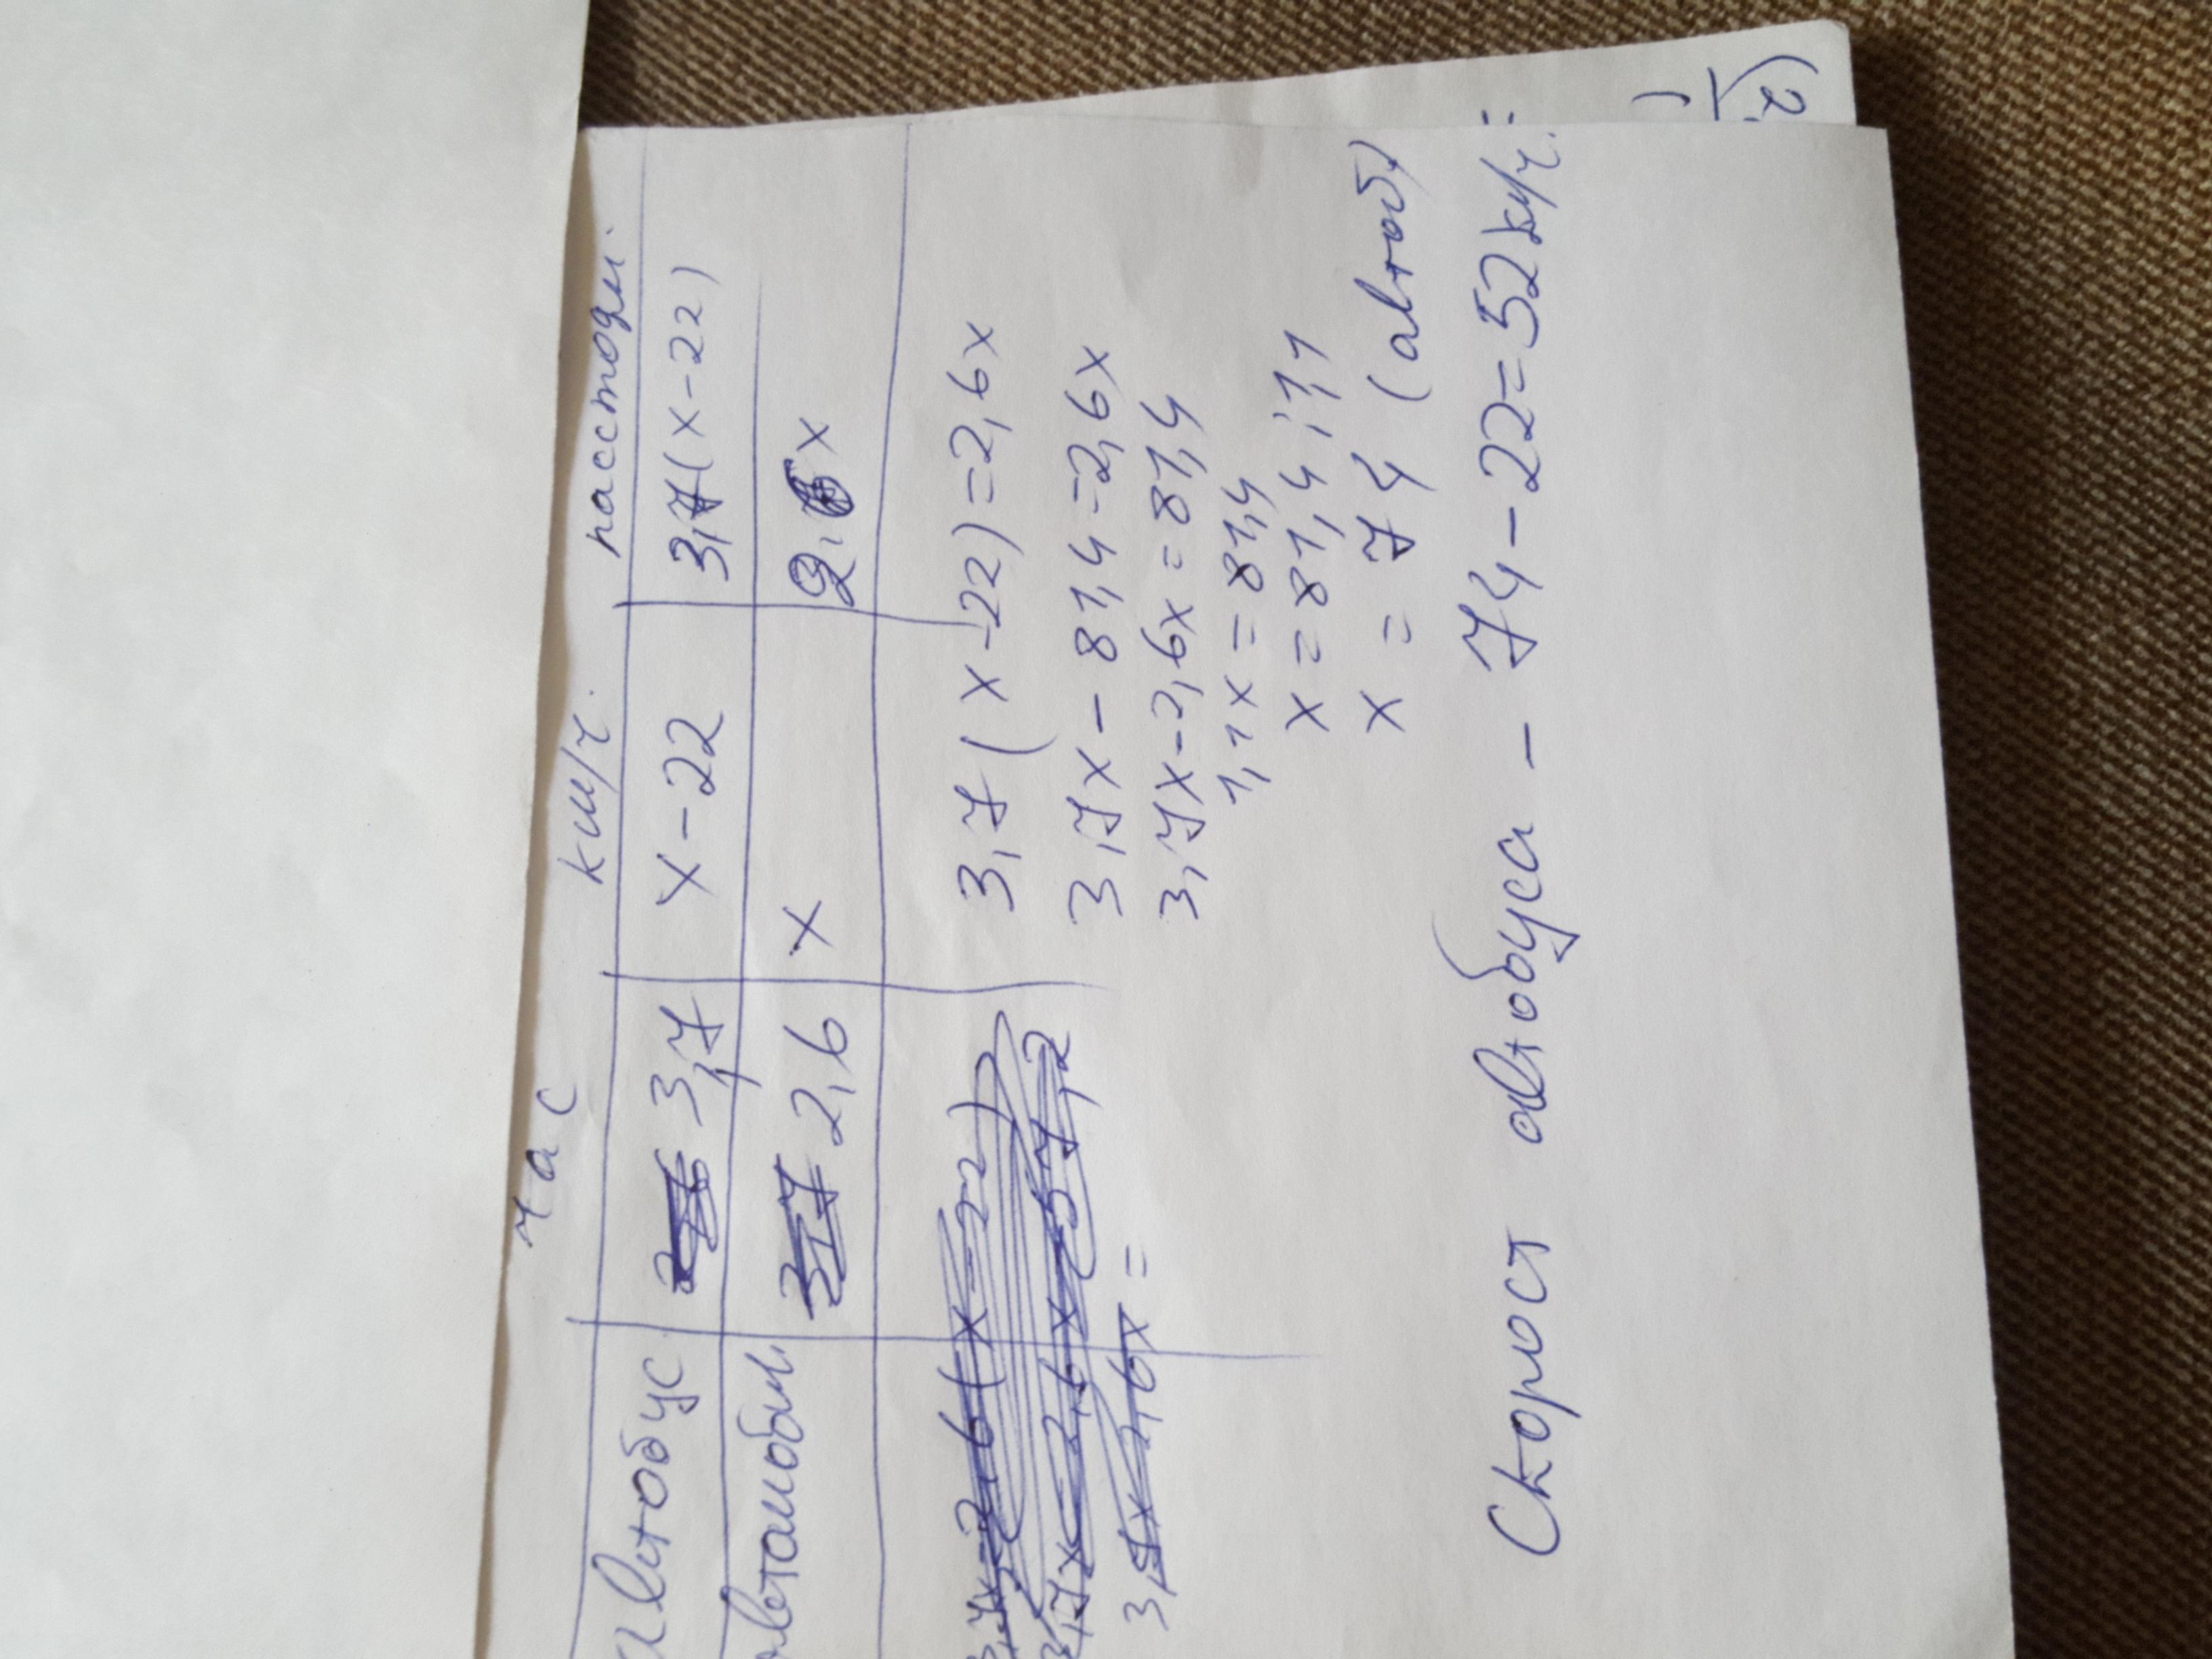 час км/ч. расстоян.
автобус 3,7 x-22 3,7(x-22)
автомобил. 2,6 x 2,6x
3,7(x-22)=2,6x
3,7x-81,4=2,6x
3,7x-2,6x=81,4
1,1x=81,4
x=81,4:1,1
x=74 (автоб)
Скорост автобуса - 74-22=52км/ч.
2)